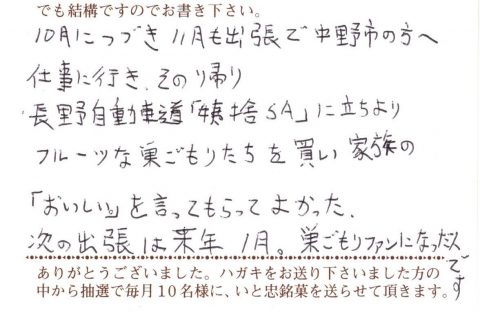 でも結構ですのでお書き下さい。
10月につづき11月も出張で中野市の方へ
仕事に行き、その帰り
長野自動車道「姨捨SA」に立ちより
フルーツな巣ごもりたちを買い家族の
「おいしい。」を言ってもらってよかった、
次の出張は来年1月。巣ごもりファンになった人です
ありがとうございました。ハガキをお送り下さいました方の
中から抽選で毎月10名様に、いと忠銘菓を送らせて頂きます。